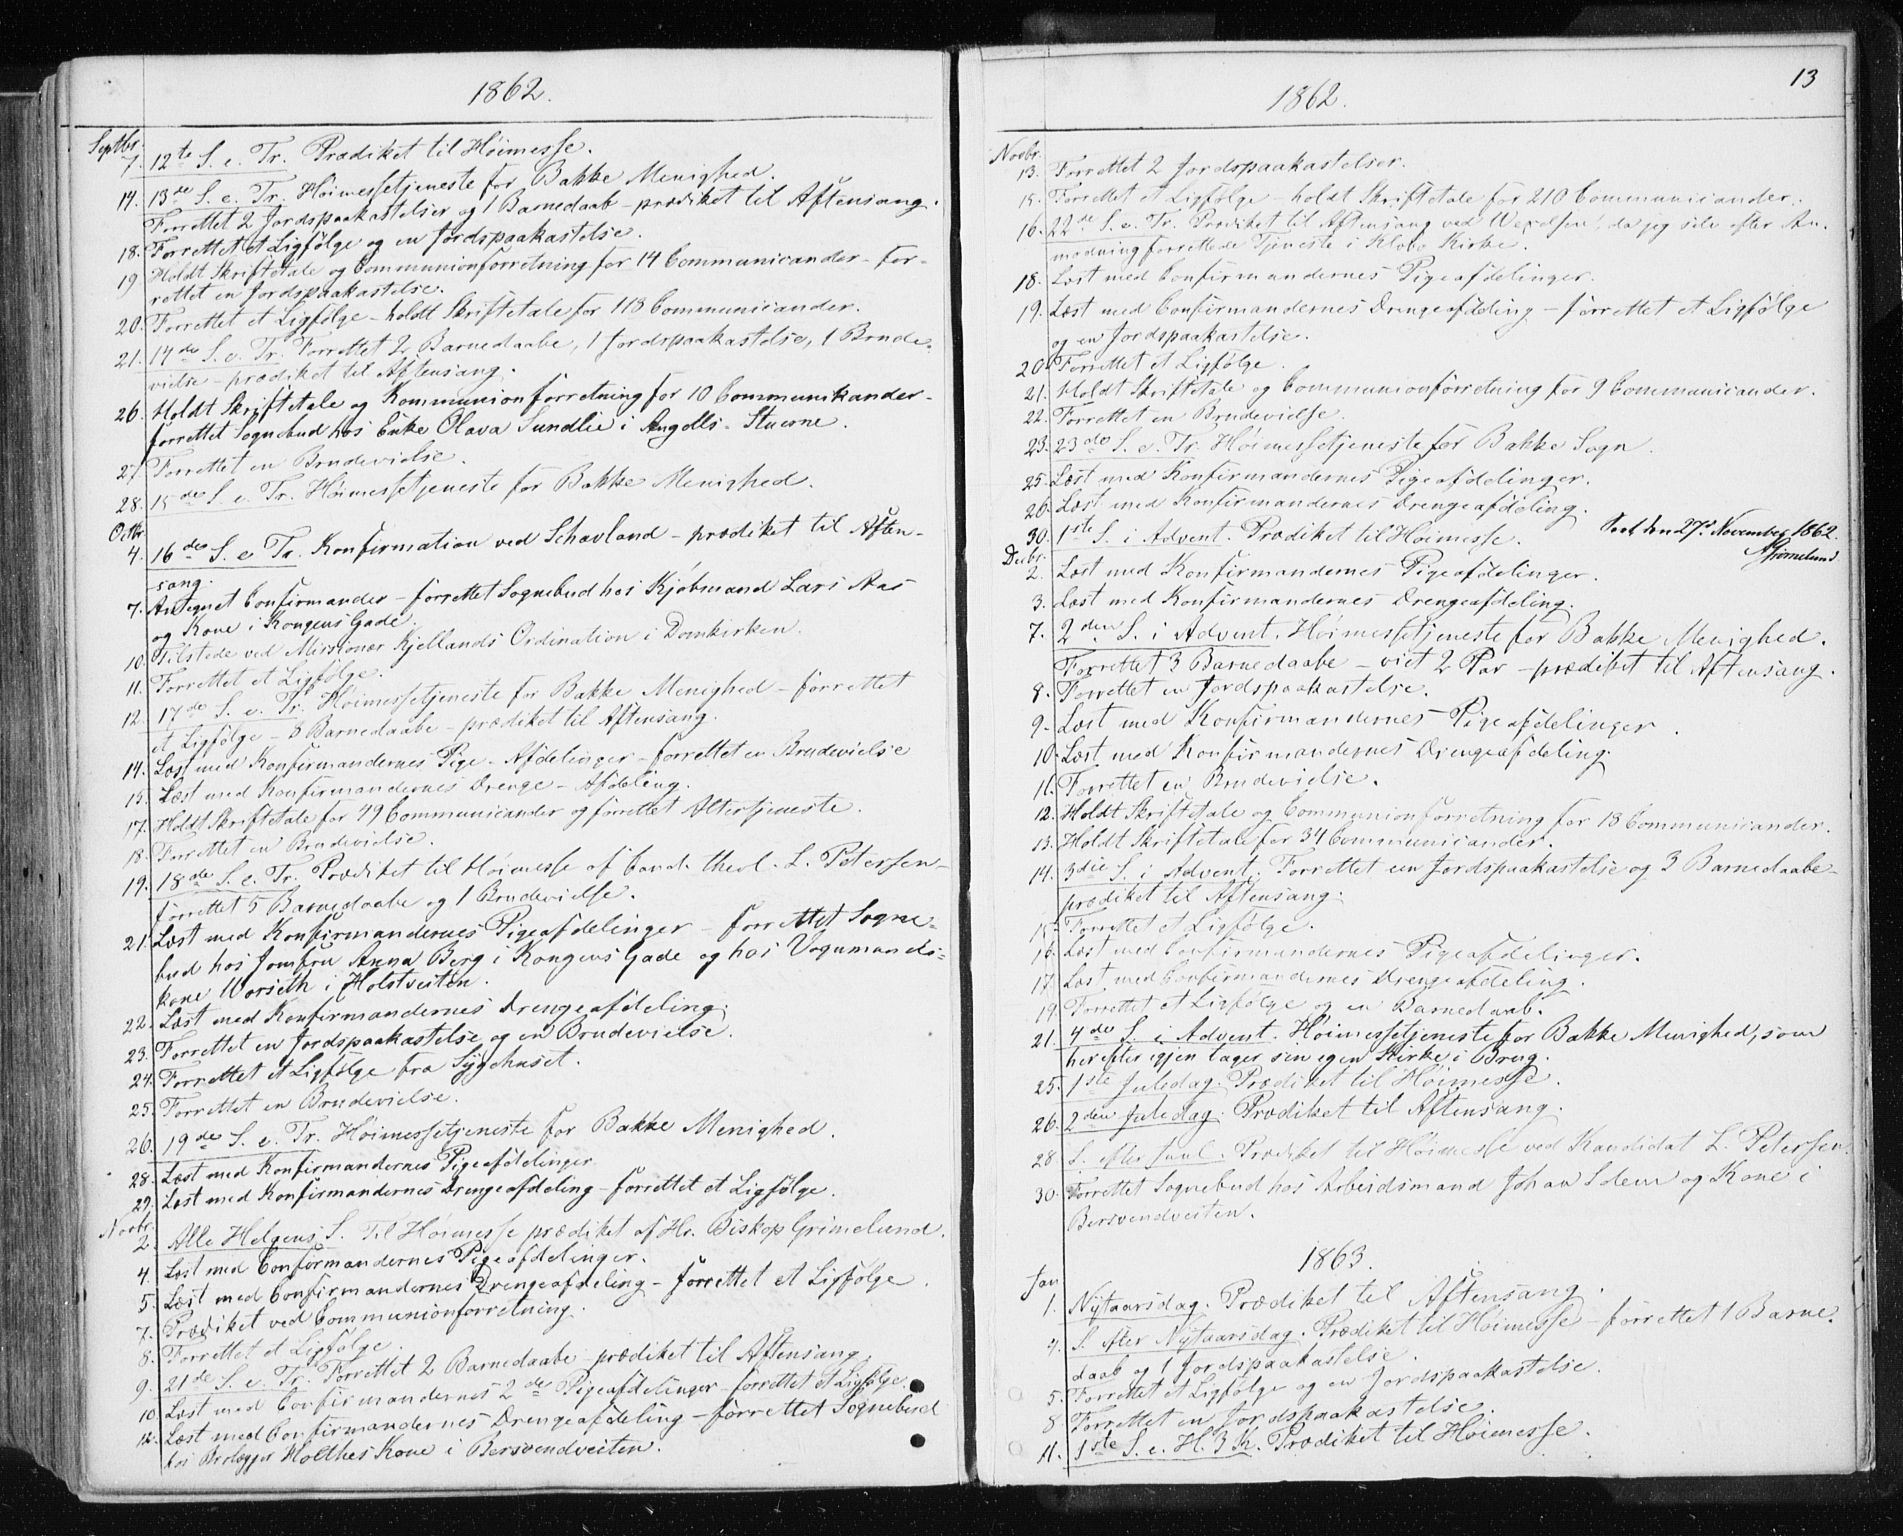 1862.
Septbr.
7. 12te S. e. Tr. Prædiket til Høimesse.
14. 13de S. e. Tr. Høimessetjeneste for Bakke Menighed.
Forrettet 2 Jordspaakastelser og 1 Barnedaab - prædiket til Aftensang.
18. Forrettet et Ligfølge og en Jordspaakastelse.
19 Holdt Skriftetale og Communionforretning for 14 Communicander - for-
rettet en Jordspaakastelse.
20. Forrettet et Ligfølge - holdt Skriftetale for 118 Communicander.
21. 14de S. e. Tr. Forrettet 2 Barnedaabe, 1 Jordspaakastelse, 1 Brude-
vielse - prædiket til Aftensang.
26. Holdt Skriftetale og Kommunionforretning for 10 Communikander -
forrettet Sognebud hos Enke Olava Sundlie i Angells-Stuerne.
27 Forrettet en Brudevielse.
28. 15de S. e. Tr. Høimessetjeneste for Bakke Menighed.
Octbr.
4. 16de S. e. Tr. Konfirmation ved Schavland - prædiket til Aften-
sang.
7. Antegnet Confirmander - forrettet Sognebud hos Kjøbmand Lars Aas
og Kone i Kongens Gade.
10. Tilstede ved Missionær Kjellands Ordination i Domkirken.
11. Forrettet et Ligfølge.
12. 17de S. e. Tr. Høimessetjeneste for Bakke Menighed - forrettet
et Ligfølge - 8 Barnedaabe - prædiket til Aftensang.
14. Læst med Konfirmandernes Pige-Afdelinger - forrettet en Brudevielse
15. Læst med Konfirmandernes Drenge-Afdeling.
17. Holdt Skriftetale for 49 Communicander og forrettet Altertjeneste.
18. Forrettet en Brudevielse.
19. 18de S. e. Tr. Prædiket til Høimesse af Cand. theol. L. Petersen -
forrettet 5 Barnedaabe og 1 Brudevielse.
21. Læst med Konfirmandernes Pigeafdelinger - forrettet Sogne-
bud hos Jomfru Anna Berg i Kongens Gade og hos Vognmands-
kone Worseth i Holstveiten.
22. Læst med Konfirmandernes Drengeafdeling.
23. Forrettet en Jordspaakastelse og en Brudevielse.
24. Forrettet et Ligfølge fra Sygehuset.
25. Forrettet en Brudevielse.
26. 19de S. e. Tr. Høimessetjeneste for Bakke Menighed.
28. Læst med Konfirmandernes Pigeafdelinger
29. Læst med Konfirmandernes Drengeafdeling - forrettet et Ligfølge.
Novbr.
2. Alle Helgens S. Til Høimesse prædiket af Hr. Biskop Grimelund.
4. Læst med Confirmandernes Pigeafdelinger.
5. Læst med Confirmandernes Drengeafdeling - forrettet et Ligfølge.
7. Prædiket ved Communionforretning.
8. Forrettet et Ligfølge.
9. 21de S. e. Tr. Forrettet 2 Barnedaabe prædiket til Aftensang
10. Læst med Confirmandernes 2de Pigeafdelinger - forrettet et Ligfølge.
12. Læst med Confirmandernes Drengeafdeling - forrettet Sognebud
hos Holthes Kone i Bersvendveiten.
13
1862.
Novbr.
13. Forrettet 2 Jordspaakastelser.
15. Forrettet et Ligfølge - holdt Skriftetale for 210 Communicander.
16. 22de S. e. Tr. Prædiket til Aftensang ved Wexelsen, da jeg selv efter An-
modning forrettede Tjeneste i Klæbo Kirke.
18. Læst med Confirmandernes Pigeafdelinger.
19. Læst med Confirmandernes Drengeafdeling - forrettet et Ligfølge
og en Jordspaakastelse.
20 Forrettet et Ligfølge.
21. Holdt Skriftetale og Communionforretning for 9 Communicander.
22. Forrettet en Brudevielse.
23. 23de S. e. Tr. Høimessetjeneste for Bakke Sogn.
25. Læst med Konfirmandernes Pigeafdelinger.
26. Læst med Konfirmandernes Drengeafdeling.
30. 1ste S. i Advent. Prædiket til Høimesse. Seet den 27de November 1862.
Grimelund
Decbr.
2. Læst med Konfirmandernes Pigeafdelinger.
3. Læst med Konfirmandernes Drengeafdeling.
7. 2den S. i Advent. Høimessetjeneste for Bakke Menighed.
Forrettet 3 Barnedaabe - viet 2 Par - prædiket til Aftensang.
8. Forrettet en Jordspaakastelse.
9. Læst med Konfirmandernes Pigeafdelinger.
10. Læst med Konfirmandernes Drengeafdeling.
11. Forrettet en Brudevielse.
12. Holdt Skriftetale og Communionforretning for 18 Communicander.
13. Holdt Skriftetale for 34 Communicander.
14. 3die S. i Advent. Forrettet een Jordspaakastelse og 3 Barnedaabe -
prædiket til Aftensang.
15. Forrettet et Ligfølge.
16. Læst med Confirmandernes Pigeafdelinger.
17. Læst med Confirmandernes Drengeafdeling.
19. Forrettet et Ligfølge og en Barnedaab.
21. 4de S. i Advent. Høimessetjeneste for Bakke Menighed, som
herefter igjen tager sin egen Kirke i Brug.
25. 1ste Juledag. Prædiket til Høimesse.
26. 2den Juledag. Prædiket til Aftensang.
28 S. efter Juul. Prædiket til Høimesse ved Kandidat L. Petersen.
30. Forrettet Sognebud hos Arbeidsmand Johan Solem og Kone i
Bersvendveiten.
1863.
Jan
1. Nytaarsdag. Prædiket til Aftensang.
4. S. efter Nytaarsdag. Prædiket til Høimesse - forrettet 1 Barne-
daab og 1 Jordspaakastelse.
5. Forrettet et Ligfølge og en Jordspaakastelse.
8. Forrettet en Jordspaakastelse.
11. 1ste S. e. H. 3 K. Prædiket til Høimesse.